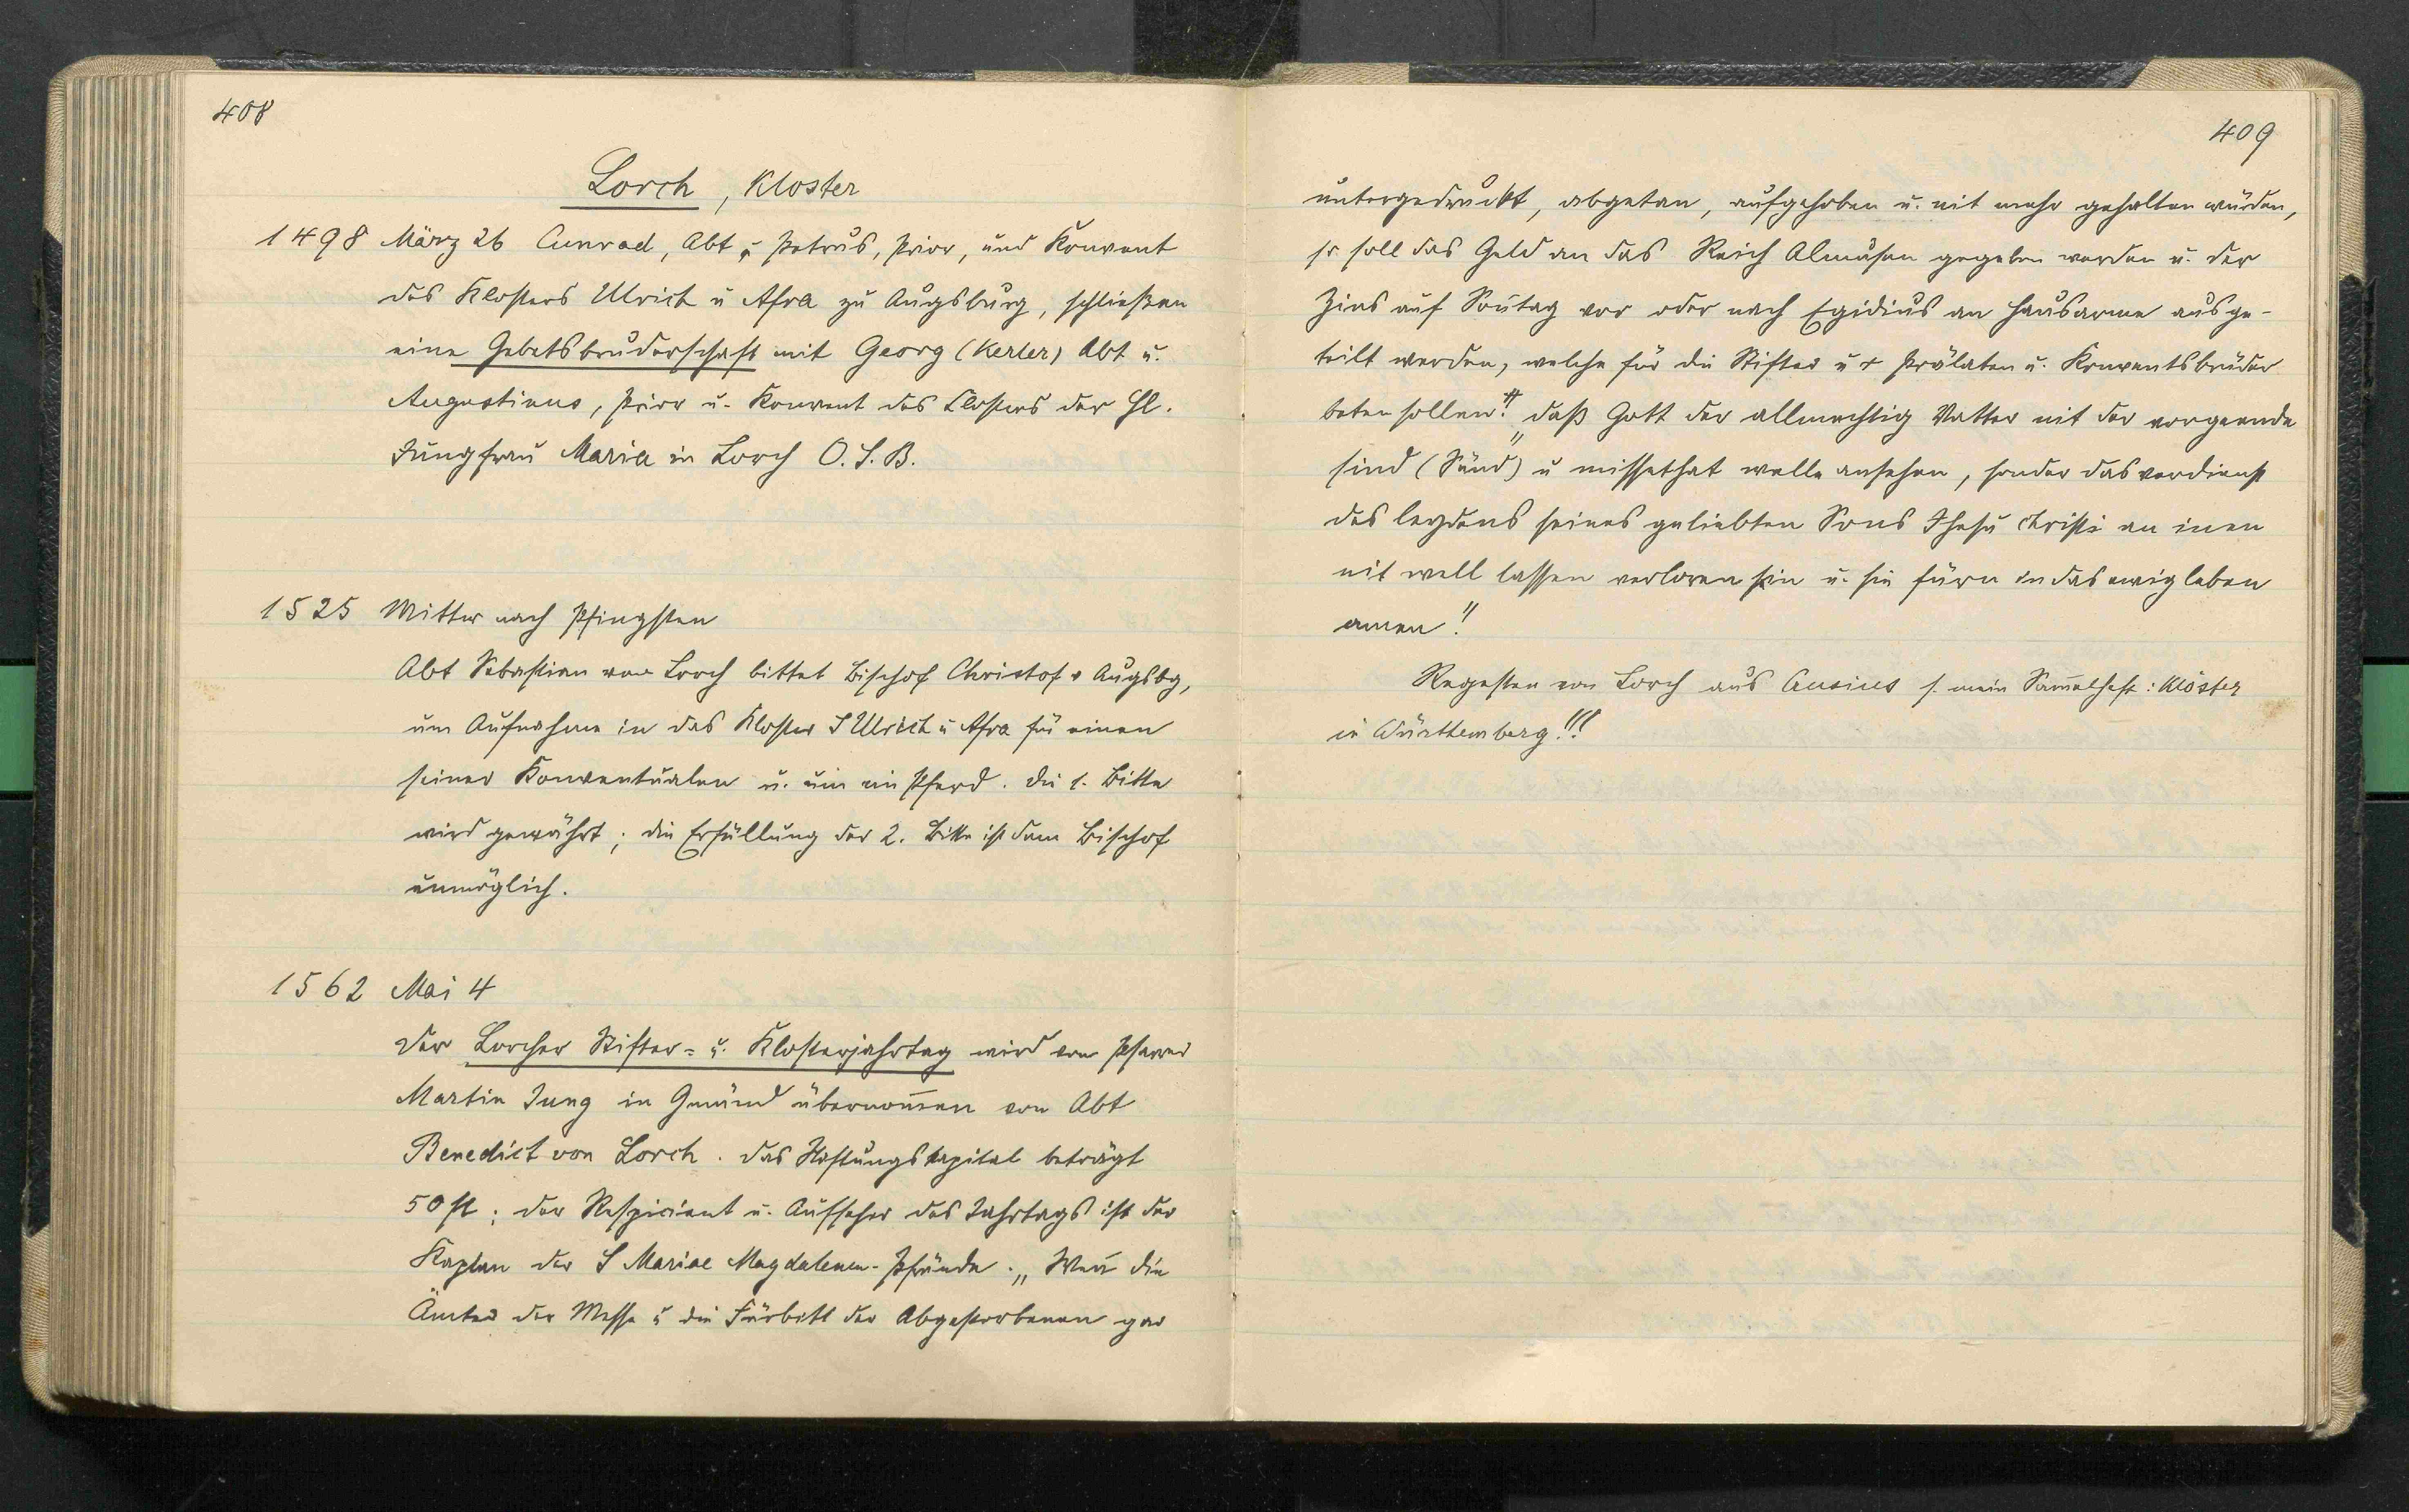 408
Lorch, Kloster
1498 März 26 Cunrad, Abt u. Petrus, Prior, und Konvent
des Klosters Ulrich u Afra zu Augsburg, schließen
eine Gebetsbruderschaft mit Georg (Kerler) Abt u.
Augustinus, Prior u. Konvent des Closters der Hl.
Jungfrau Maria in Lorch O.S.B.
1525 Mittw nach Pfingsten
Abt Sebastian von Lorch bittet Bischof Christof v Augsbg,
um Aufnahme in das Kloster S Ulrich u Afra für einen
seiner Konventualen u. um ein Pferd. Die 1. Bitte
wird gewährt; die Erfüllung der 2. Bitte ist dem Bischof
unmöglich.
1562 Mai 4
Der Lorcher Stifter- u. Klosterjahrtag wird vom Pfarrer
Martin Jung in Gmünd übernom̄en von Abt
Benedict von Lorch. Das Stiftungskapital beträgt
50 fl; der Respicient u. Aufseher des Jahrtags ist der
Kaplan der S Mariae Magdalenen-Pfründe. „Wen̄ die
Ämter der Messe u die Fürbitt der Abgestorbenen gar
409
untergedruckt, abgetan, aufgehoben u. nit mehr gehalten würden,
so soll das Geld an das Reich Almusen gegeben werden u. der
Zins auf Son̄tag vor oder nach Egidius an Hausarme ausge-
teilt werden, welche für die Stifter u + Prälaten u. Konventsbrüder
beten sollen: „daß Gott der allmechtig Vatter nit der vorgeende
sind (Sünd) u missethat welle ansehen, sonder das verdienst
des leydens seines geliebten Sons Jhesu Christi an inen
nit well lassen verloren sin u. sie füren in das ewig leben
amen!"
Regesten von Lorch aus Crusius s. mein Sam̄elheft: Klöster
in Württemberg!!!